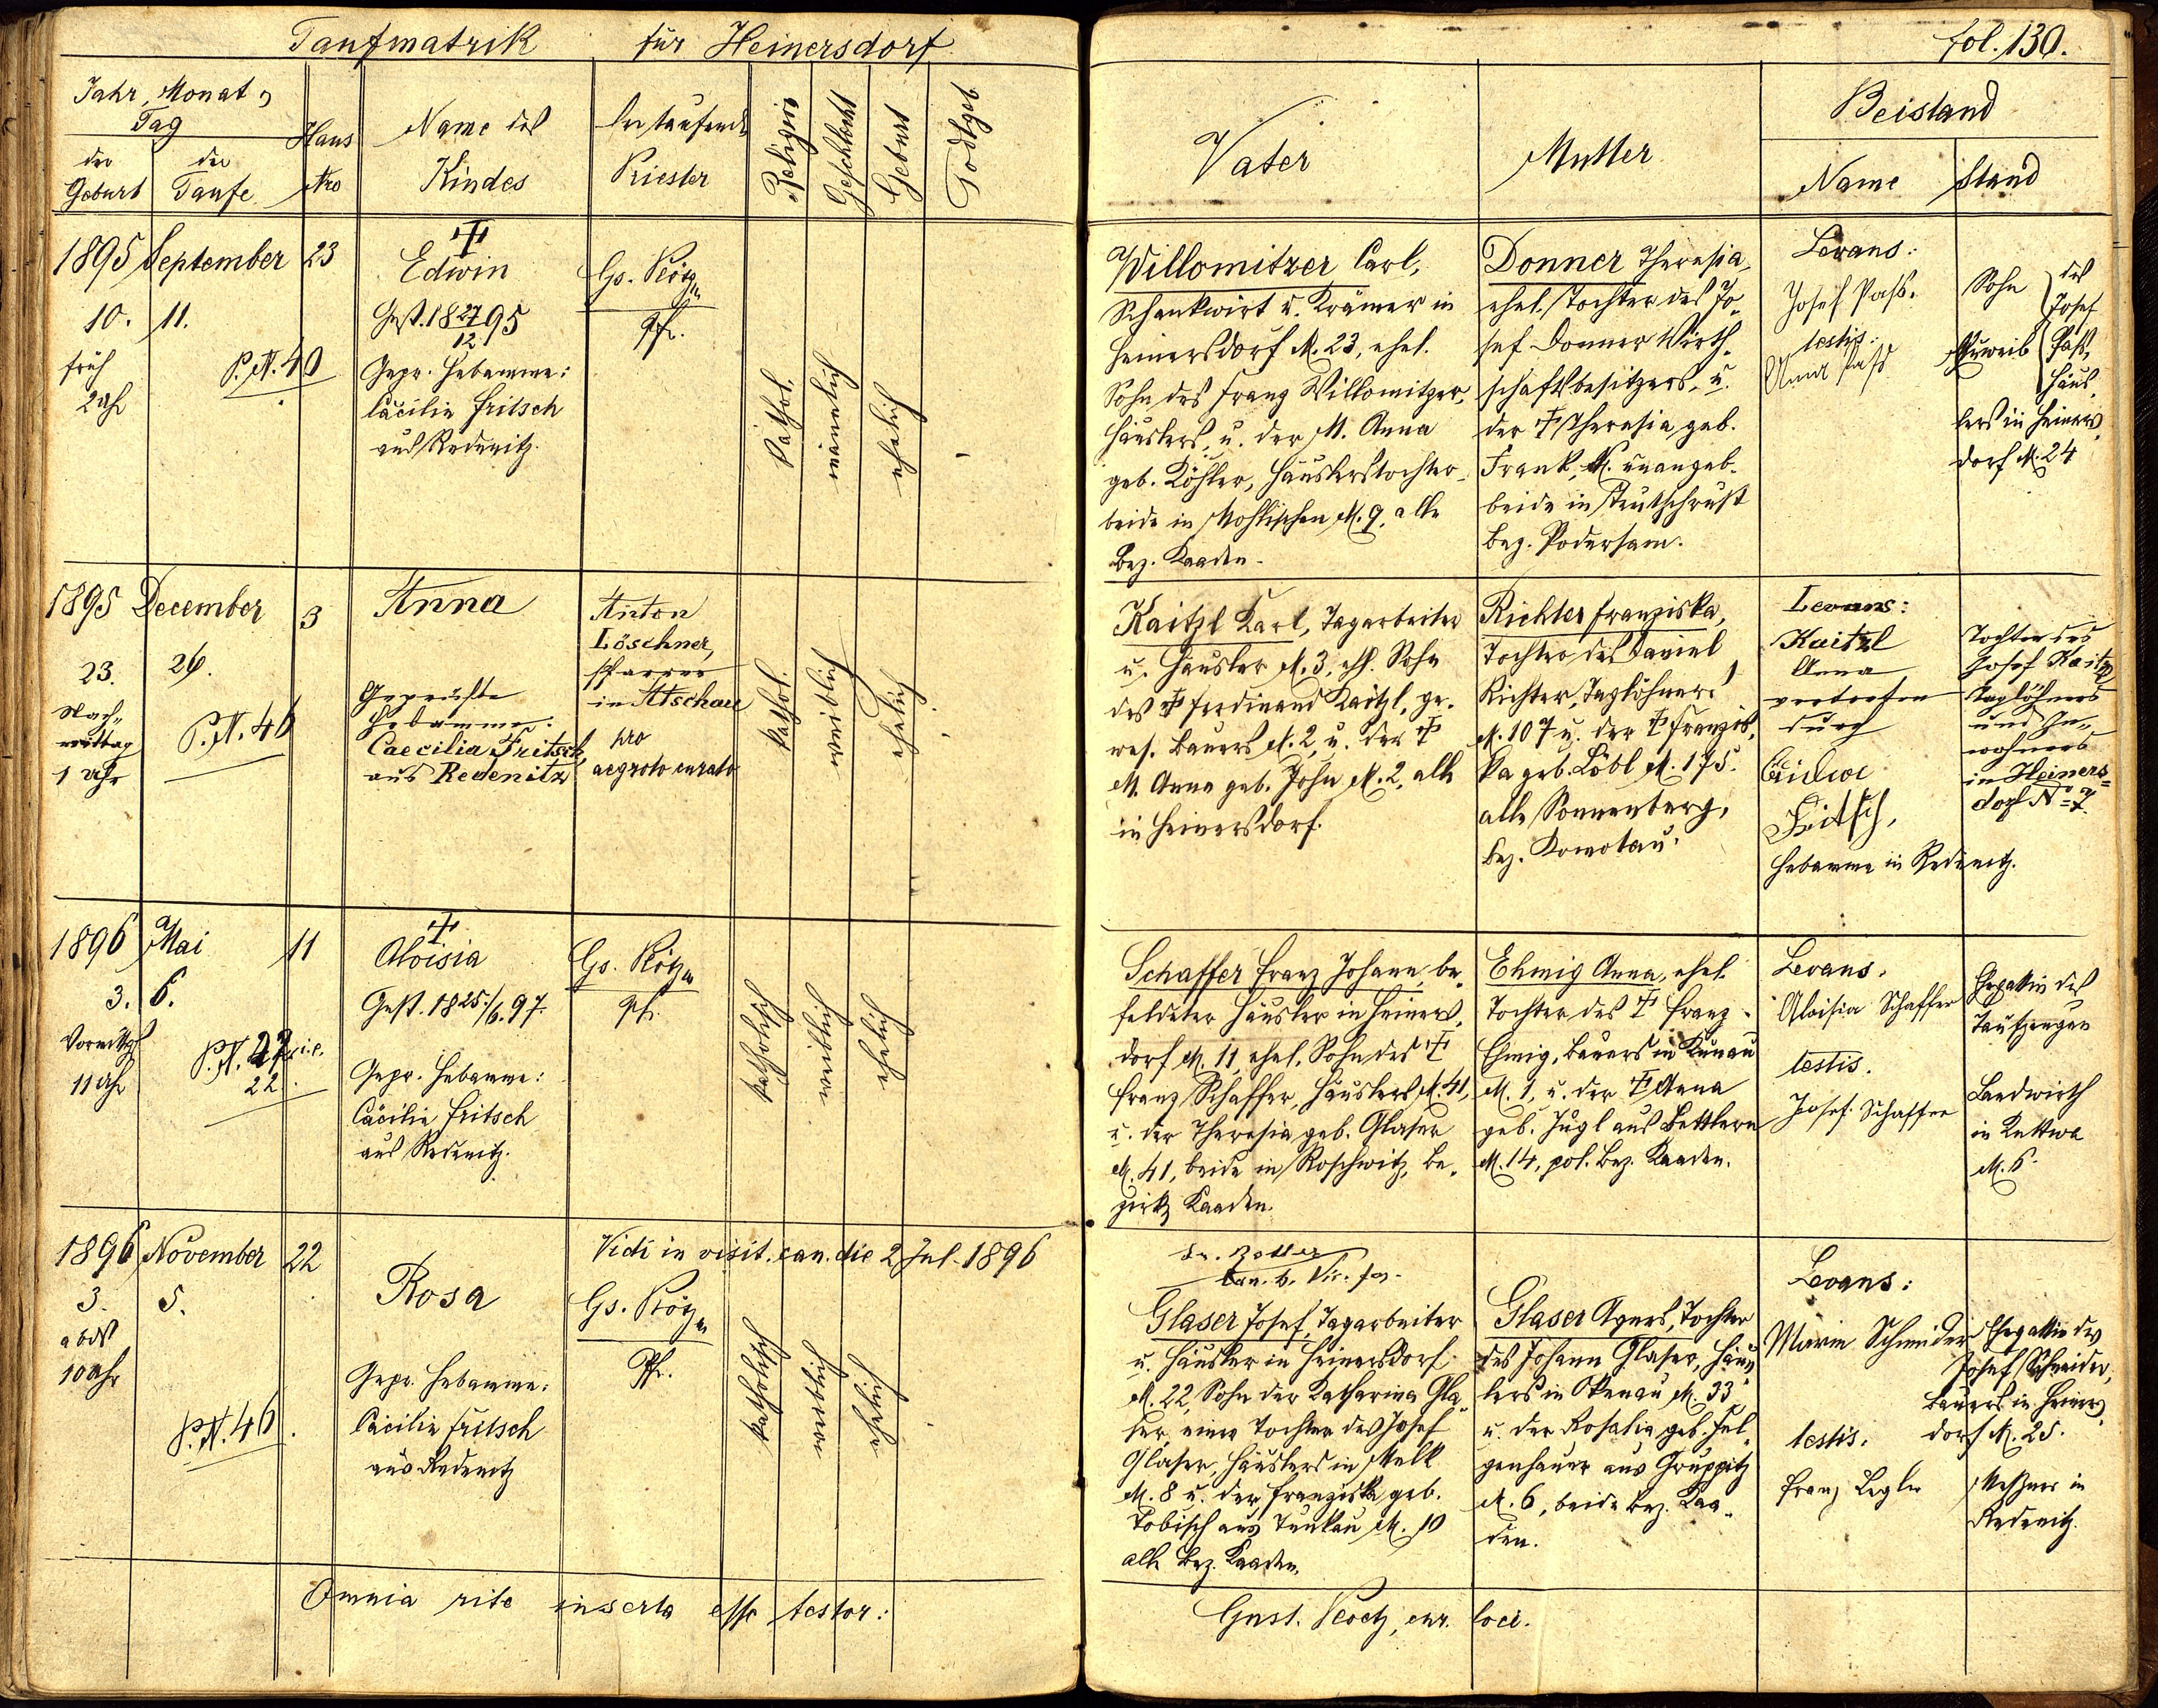 Taufmatrik für Heinersdorf
fol. 130.
Jahr, Monat u
Tag
der Geburt
der Taufe
Haus
Nro
Name des
Kindes
Der taufende
Priester
Religion
Geschlecht
Geburt
Todtgeb
Vater
Mutter
Beistand
Name
Stand
1895 September 23
10. 11.
früh
2 Uhr
P.N. 40
Edwin
Gest. 18 27/12 95
Gepr. Hebamme:
Cäcilia Fritsch
aus Redenitz.
Gs.
Pfr.
kathol.
männlich
ehelich
Willomitzer Carl,
Schankwirt u. Krämer in
Heinersdorf N. 23, ehel.
Sohn des Franz Willomitzer,
Häuslers, u. der M. Anna
geb. Köhler, Häuslerstochter
beide in Mohlischen N. 9, alle
Bez. Kaaden.
Donner Theresia,
ehel. Tochter des Jo-
sef Donner Wirth-
schaftsbesitzers, u.
der † Theresia geb.
Frank, N. unangeb.
beide in
Bez. Podersam.
Levans:
Josef Paß.
testis:
Anna Paß
Sohn
Eheweib
des
Josef
Paß,
Häus-
lers in Heiners-
dorf N. 24
1895 December 3
23. 26.
Nach-
mittag
1 Uhr
P.N. 46
Anna
Geprüfte
Hebamme:
Caecilia Fritsch,
aus Redenitz
Anton
Löschner,
Pfarrer
in Atschau
pro
aegroto curato
kathol.
weiblich
ehelich
Kaitzl Karl, Tagarbeiter
u. Häusler N. 3, ehl. Sohn
des † Ferdinand Kaitzl, ge-
wes. Bauers N. 2, u. der †
M. Anna geb. John N. 2, alle
in Heinersdorf.
Richter Franziska,
Tochter des Daniel
Richter, Taglöhners
N. 107 u. der † Franzis-
ka geb. Löbl N. 175.
alle Sonnenberg,
Bez. Komotau.
Levans:
Kaitzl
Anna
vertreten
durch
Fritsch,
Hebamme in Redenitz.
Tochter des
Josef Kaitzl
Taglöhners
und In-
wohners
in Heiners-
dorf No 7.
1896 Mai 11
3. 6.
Vormittg
11 Uhr
P.N. 27 sic.
22.
Aloisia
Gest. 18 25./6. 97.
Gepr. Hebamme:
Cäcilia Fritsch
aus Redenitz.
Gs.
Pfr.
katholisch
weiblich
ehelich
Schaffer Franz Johann, be-
feldeter Häusler in Heiners-
dorf N. 11, ehel. Sohn des †
Franz Schaffer, Häuslers N. 41,
u. der Theresia geb. Glaser
N. 41, beide in Roschwitz, Be-
zirks Kaaden.
Ehmig Anna, ehel.
Tochter des † Franz
Ehmig, Bauers in Kunau
N. 1, u. der † Anna
geb. Jugl aus Bettlern
N. 14, pol. Bez. Kaaden.
Levans.
Aloisia Schaffer
testis.
Josef Schaffer
Ehegattin des
Taufzeugen
Landwirth
in Rettwa
N. 6.
1896 November 22
3. 5.
abds
10 Uhr
P.N. 46
Vidi in visit. can. die 2 Jul. 1896
Rosa
Gepr. Hebamme:
Cäcilia Fritsch
aus Redenitz
Gs.
Pfr.
katholisch
weiblich
ehelich
Glaser Josef, Tagarbeiter
u. Häusler in Heinersdorf
N. 22, Sohn der Katharina Gla-
ser, einer Tochter des Josef
Glaser, Häuslers in Melk
N. 8 u. der Franziska geb.
Tobisch aus Tunkau N. 10
alle Bez. Kaaden.
Glaser Agnes, Tochter
des Johann Glaser, Häus-
lers in Okenau N. 33
u. der Rosalia geb. Fel-
genhauer aus Gruppitz
N. 6, beide Bez. Kaa-
den.
Levans:
Marie Schneider
testis.
Franz Legler
Ehegattin des
Josef Schneider,
Bauers in Heiners-
dorf N. 25.
Meßner in
Redenitz.
Omnia rite inserta esse testor:
Gust. cur. loci.